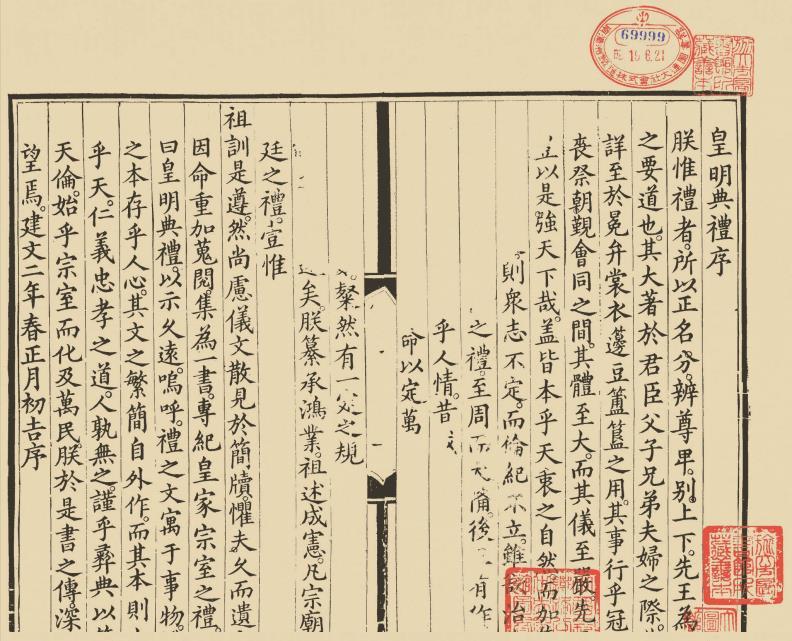 皇明典禮序
朕惟禮者。所以正名分。辨尊卑。別上下。先王為
之要道也。其大著於君臣父子兄弟夫婦之際。
詳至於冕弁裳衣籩豆簠簋之用。其事行乎冠
喪祭朝覲會同之間。其體至大。而其儀至嚴。先
以是。強天下哉。盖皆本乎天衷之自然而加
則衆志不定。而倫紀不立。雖
之禮。至周而大備。後有作
乎人情。昔
命以定萬
粲然有一定之規
矣。朕纂承鴻業。祖述成憲。凡宗廟
廷之禮。壹惟
祖訓是遵。然尚慮儀文散見於簡牘。懼夫久而遺
因命重加蒐閱。集為一書。專紀皇家宗室之禮。
曰皇明典禮。以示久遠。嗚呼。禮之文寓于事物。
之本存乎人心。其文之繁簡自外作。而其本則
乎天。仁義忠孝之道。人孰無之。謹乎彝典以
天倫。始乎宗室而化及萬民。朕於是書之傳。深
望焉。建文二年春正月初吉序
69999
19.6.21